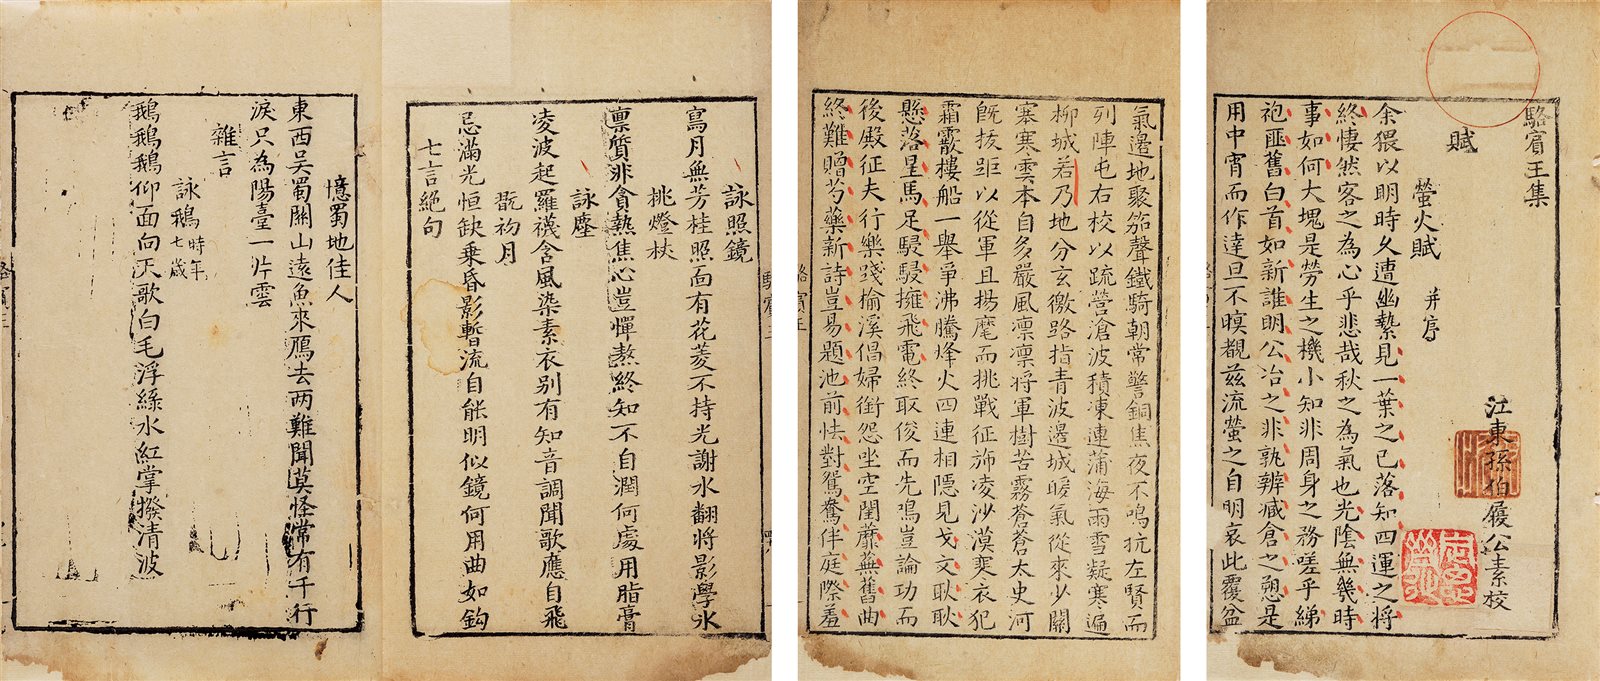 駱賓王集
江東孫伯履公素校
賦
螢火賦 并序
余猥以明時久遭幽縶見一葉之已落知四運之將
終悽然客之為心乎悲哉秋之為氣也光陰無幾時
事如何大塊是勞生之機小知非周身之務嗟乎綈
袍匪舊白首如新誰明公冶之非孰辨臧倉之愬是
用中宵而作達旦不暝覩茲流螢之自明哀此覆盆
氣邊地聚笳聲鐵騎朝常警銅焦夜不鳴抗左賢而
列陣屯右校以疏營滄波積凍連蒲海雨雪凝寒遍
柳城若乃地分玄徼路指青波邊城暖氣從來少關
塞寒雲本自多嚴風凛凛將軍樹苦霧蒼蒼太史河
既拔距以從軍且揚麾而挑戰征斾凌沙漠戎衣犯
霜霰樓船一舉爭沸騰烽火四連相隱見戈文耿耿
懸落星馬足駸駸擁飛電終取俊而先鳴豈論功而
後殿征夫行樂踐榆溪倡婦銜怨坐空閨蘼蕪舊曲
終難贈芍藥新詩豈易題池前怯對鴛鴦伴庭際羞
駱賓王
詠照鏡
寫月無芳桂照面有花菱不持光謝水翻將影學冰
挑燈杖
稟質非貪熱焦心豈憚熬終知不自潤何處用脂膏
詠塵
凌波起羅襪含風染素衣別有知音調聞歌應自飛
翫初月
忌滿光恒缺乗昏影暫流自能明似鏡何用曲如鈎
七言絕句
憶蜀地佳人
東西吳蜀關山遠魚來鴈去两難聞莫怪常有千行
淚只為陽臺一片雲
雜言
詠鵝 時年七歲
鵝鵝鵝仰面向天歌白毛浮綠水紅掌撥清波